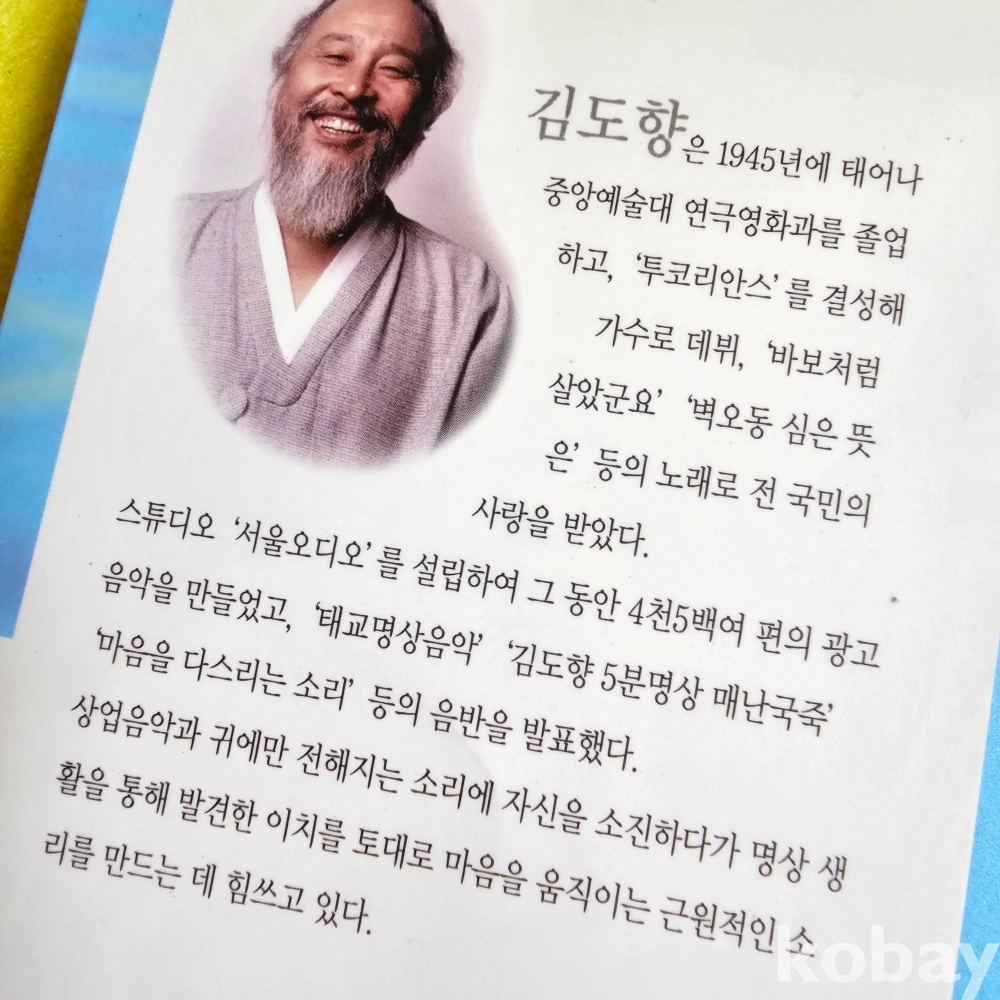 김도향은 1945년에 태어나
중앙예술대 연극영화과를 졸업
하고, ‘투코리안스’를 결성해
가수로 데뷔, ‘바보처럼
살았군요’ ‘벽오동 심은 뜻
은’ 등의 노래로 전 국민의
사랑을 받았다.
스튜디오 ‘서울오디오’를 설립하여 그 동안 4천5백여 편의 광고
음악을 만들었고, ‘태교명상음악’ ‘김도향 5분명상 매난국죽’
‘마음을 다스리는 소리’ 등의 음반을 발표했다.
상업음악과 귀에만 전해지는 소리에 자신을 소진하다가 명상 생
활을 통해 발견한 이치를 토대로 마음을 움직이는 근원적인 소
리를 만드는 데 힘쓰고 있다.
kobay